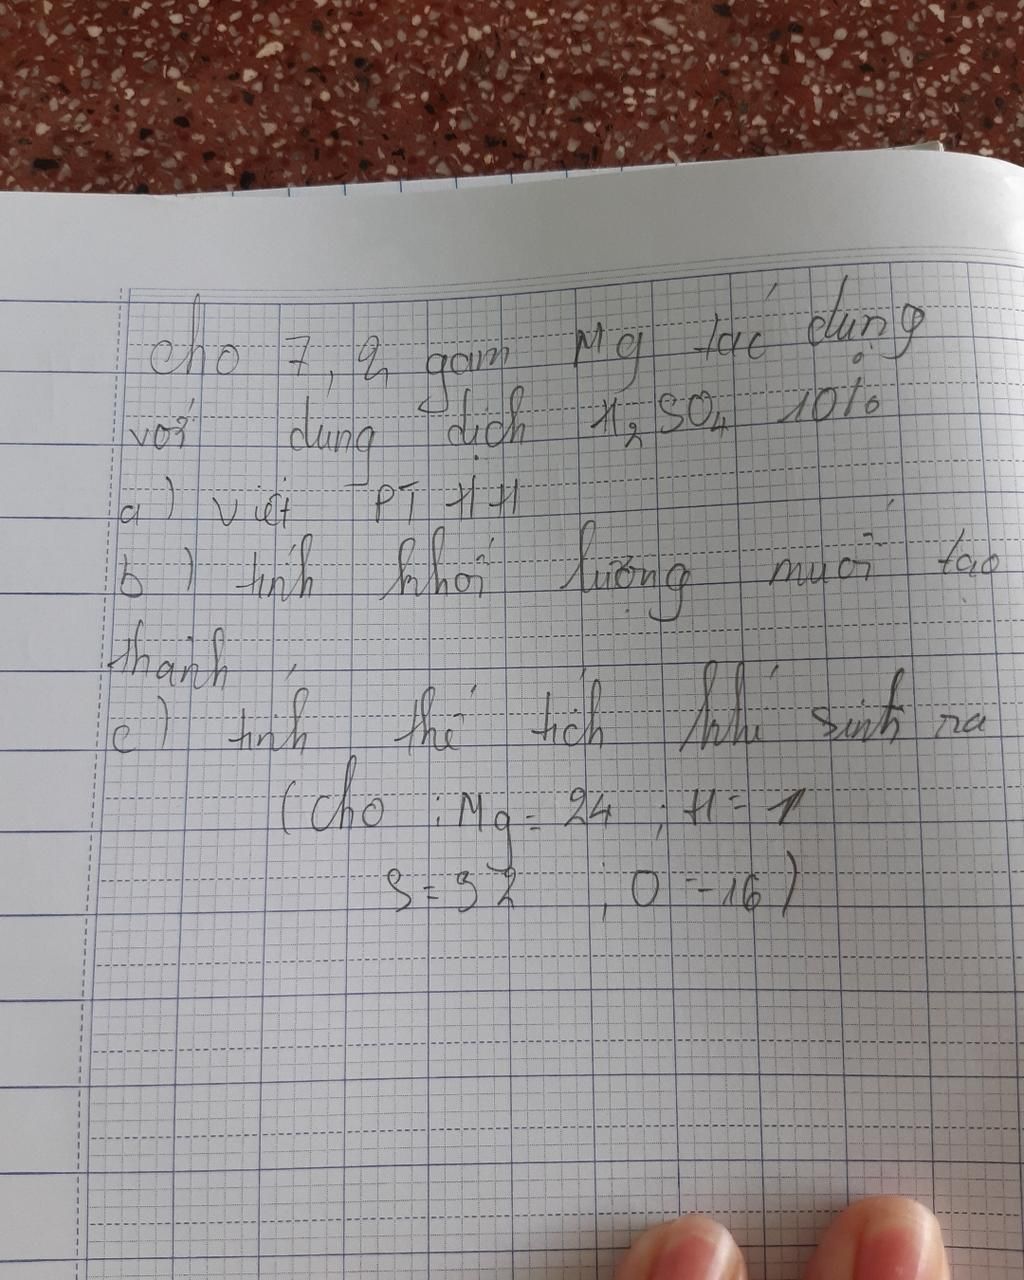 cho 7,2 gam Mg tác dụng
với dung dịch H₂SO₄ 10%
a) viết PTHH
b) tính khối lượng muối tạo
thành
c) tính thể tích khí sinh ra
(cho : Mg = 24 ; H = 1
S = 32 ; O = 16)